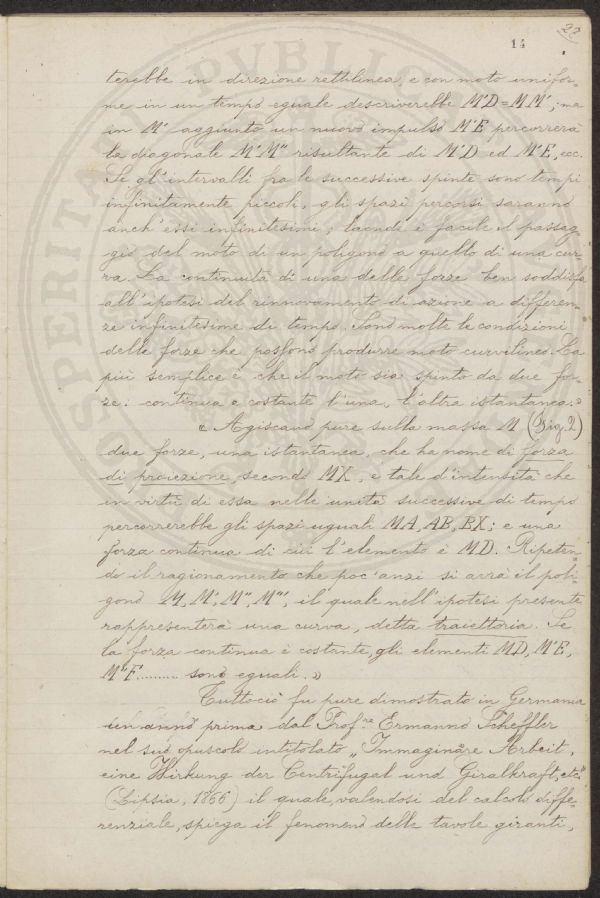 27
14
terebbe in direzione rettilinea e con moto unifor-
me in un tempo eguale descriverebbe M'D = MM'; ma
in M' aggiunto un nuovo impulso M'E percorrerà
la diagonale M'M" risultante di M'D ed M'E, ecc.
Se gl'intervalli fra le successive spinte sono tempi
infinitamente piccoli, gli spazi percorsi saranno
anch'essi infinitesimi; laonde è facile il passag-
gio del moto di un poligono a quello di una cur-
va. La continuità di una delle forze ben soddisfa
all'ipotesi del rinnovamento di azione a differen-
ze infinitesime di tempo. Sono molte le condizioni
delle forze che possono produrre moto curvilineo. La
più semplice è che il moto sia spinto da due for-
ze: continua e costante l'una, l'altra istantanea.»
« Agiscano pure sulla massa M (Fig. 2)
due forze, una istantanea, che ha nome di forza
di proiezione, secondo MX, e tale d'intensità che
in virtù di essa nelle unità successive di tempo
percorrerebbe gli spazi uguali MA, AB, BX; e una
forza continua di cui l'elemento è MD. Ripeten-
do il ragionamento che poc'anzi si avrà il poli-
gono M, M', M", M"', il quale nell'ipotesi presente
rappresenterà una curva, detta traiettoria. Se
la forza continua è costante, gli elementi MD, M'E,
M"F ......... sono eguali.»
Tuttociò fu pure dimostrato in Germania
un anno prima dal Prof.re Ermanno Scheffler
nel suo opuscolo intitolato „Immaginäre Arbeit,
eine Wirkung der Centrifugal und Giralkraft, etc."
(Lipsia, 1866) il quale, valendosi del calcolo diffe-
renziale, spiega il fenomeno delle tavole giranti,